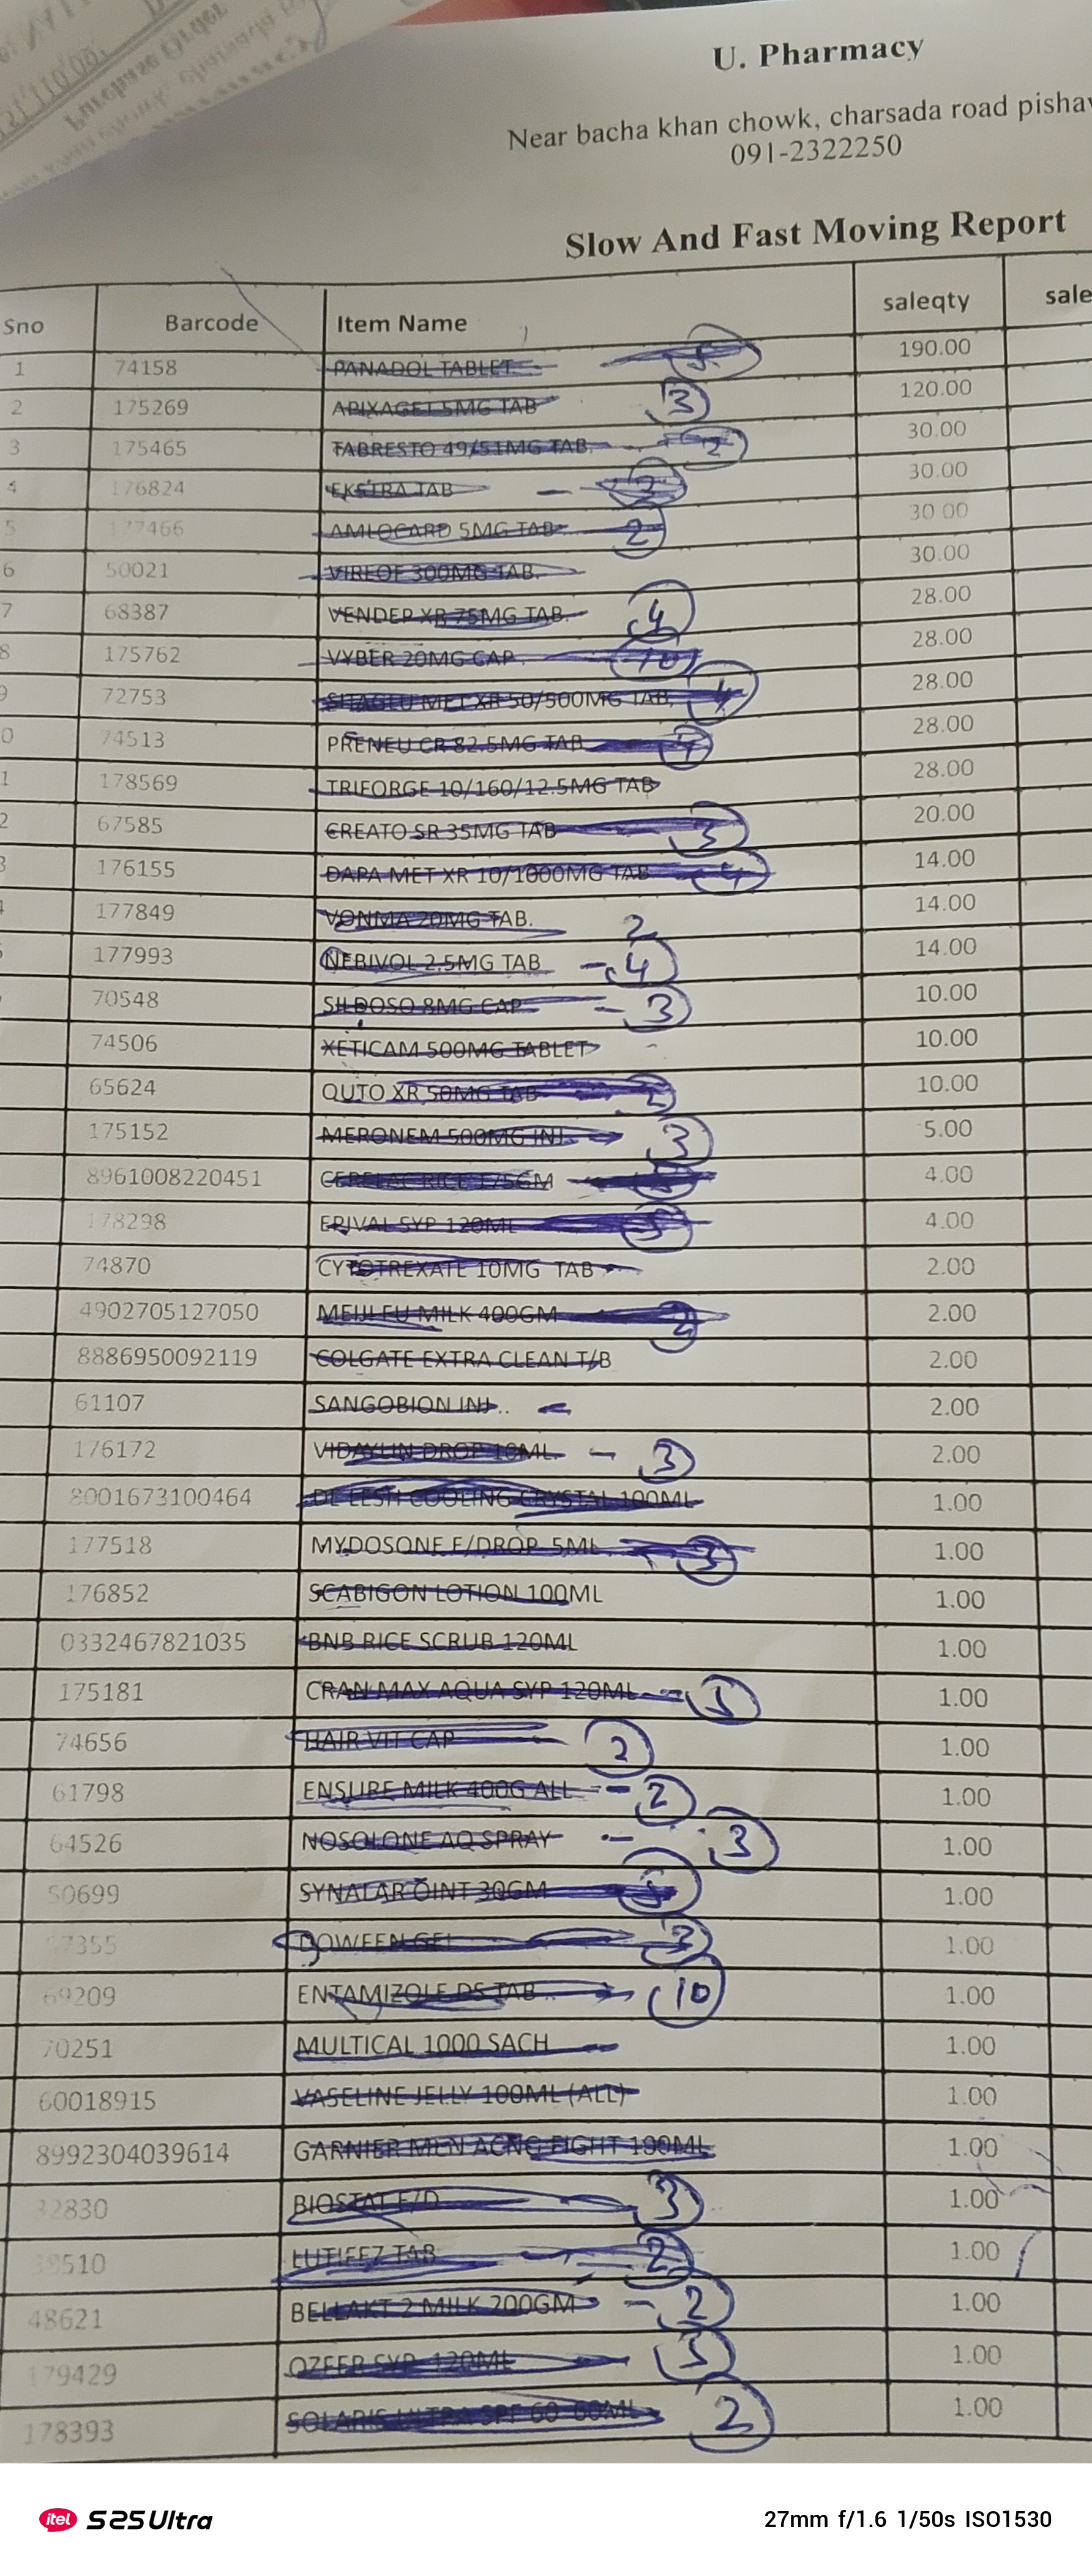 U. Pharmacy
Near bacha khan chowk, charsada road pisha
091-2322250
Slow And Fast Moving Report
Sno Barcode Item Name saleqty sale
1 74158 PANADOL TABLET 5 190.00
2 175269 APIXAGET 5MG TAB 3 120.00
3 175465 TABRESTO 49/51MG TAB. 2 30.00
4 176824 EKSTRA TAB 30.00
5 177466 AMLOCARD 5MG TAB 2 30.00
6 50021 VIREOF 300MG TAB. 30.00
7 68387 VENDEP XR 75MG TAB. 4 28.00
8 175762 VYBER 20MG CAP 10 28.00
9 72753 SITAGLU MET XR 50/500MG TAB, 4 28.00
0 74513 PRENEU CR 82.5MG TAB 28.00
1 178569 TRIFORGE 10/160/12.5MG TAB 28.00
2 67585 CREATO SR 35MG TAB 3 20.00
3 176155 DAPA MET XR 10/1000MG TAB 4 14.00
177849 VONMA 20MG TAB. 2 14.00
177993 NEBIVOL 2.5MG TAB 4 14.00
70548 SILDOSO 8MG CAP 3 10.00
74506 XETICAM 500MG TABLET 10.00
65624 QUTO XR 50MG TAB 2 10.00
175152 MERONEM 500MG INJ 3 5.00
8961008220451 CERELAC RICE 175GM 4.00
178298 ERIVAL SYP 120ML 4.00
74870 CYTOTREXATE 10MG TAB 2.00
4902705127050 MEIJI FU MILK 400GM 2 2.00
8886950092119 COLGATE EXTRA CLEAN T/B 2.00
61107 SANGOBION INJ.. 2.00
176172 VIDAYLIN DROP 10ML 3 2.00
8001673100464 COOLING CRYSTAL 100ML 1.00
177518 MYDOSONE E/DROP 5ML 3 1.00
176852 SCABIGON LOTION 100ML 1.00
0332467821035 BNB RICE SCRUB 120ML 1.00
175181 CRAN MAX AQUA SYP 120ML 1.00
74656 HAIR VIT CAP 2 1.00
61798 ENSURE MILK 400G ALL 2 1.00
64526 NOSOLONE AQ SPRAY 3 1.00
50699 SYNALAR OINT 30GM 1.00
355 DOWFEN GEL 1.00
69209 ENTAMIZOLE DS TAB 10 1.00
70251 MULTICAL 1000 SACH 1.00
60018915 VASELINE JELLY 100ML (ALL) 1.00
8992304039614 GARNIER MEN ACNO FIGHT 100ML 1.00
32830 BIOSTAT E/D 3 1.00
510 LUTIFEZ TAB 2 1.00
48621 BELLAKT 2 MILK 200GM 2 1.00
179429 OZFER SYP 120ML 3 1.00
178393 SOLARIS ULTRA SPF 60 60ML 2 1.00
itel S25 Ultra 27mm f/1.6 1/50s ISO1530